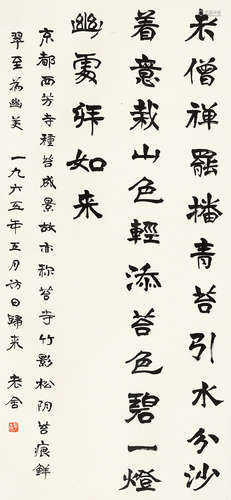 老僧禅罷播青苔引水分沙
着意栽山色輕添苔色碧一燈
幽處拜如来
京都西芳寺種苔成景故亦称苔寺竹影松阴苔痕鲜
翠至為幽美 一九六五年五月访日歸来 老舍